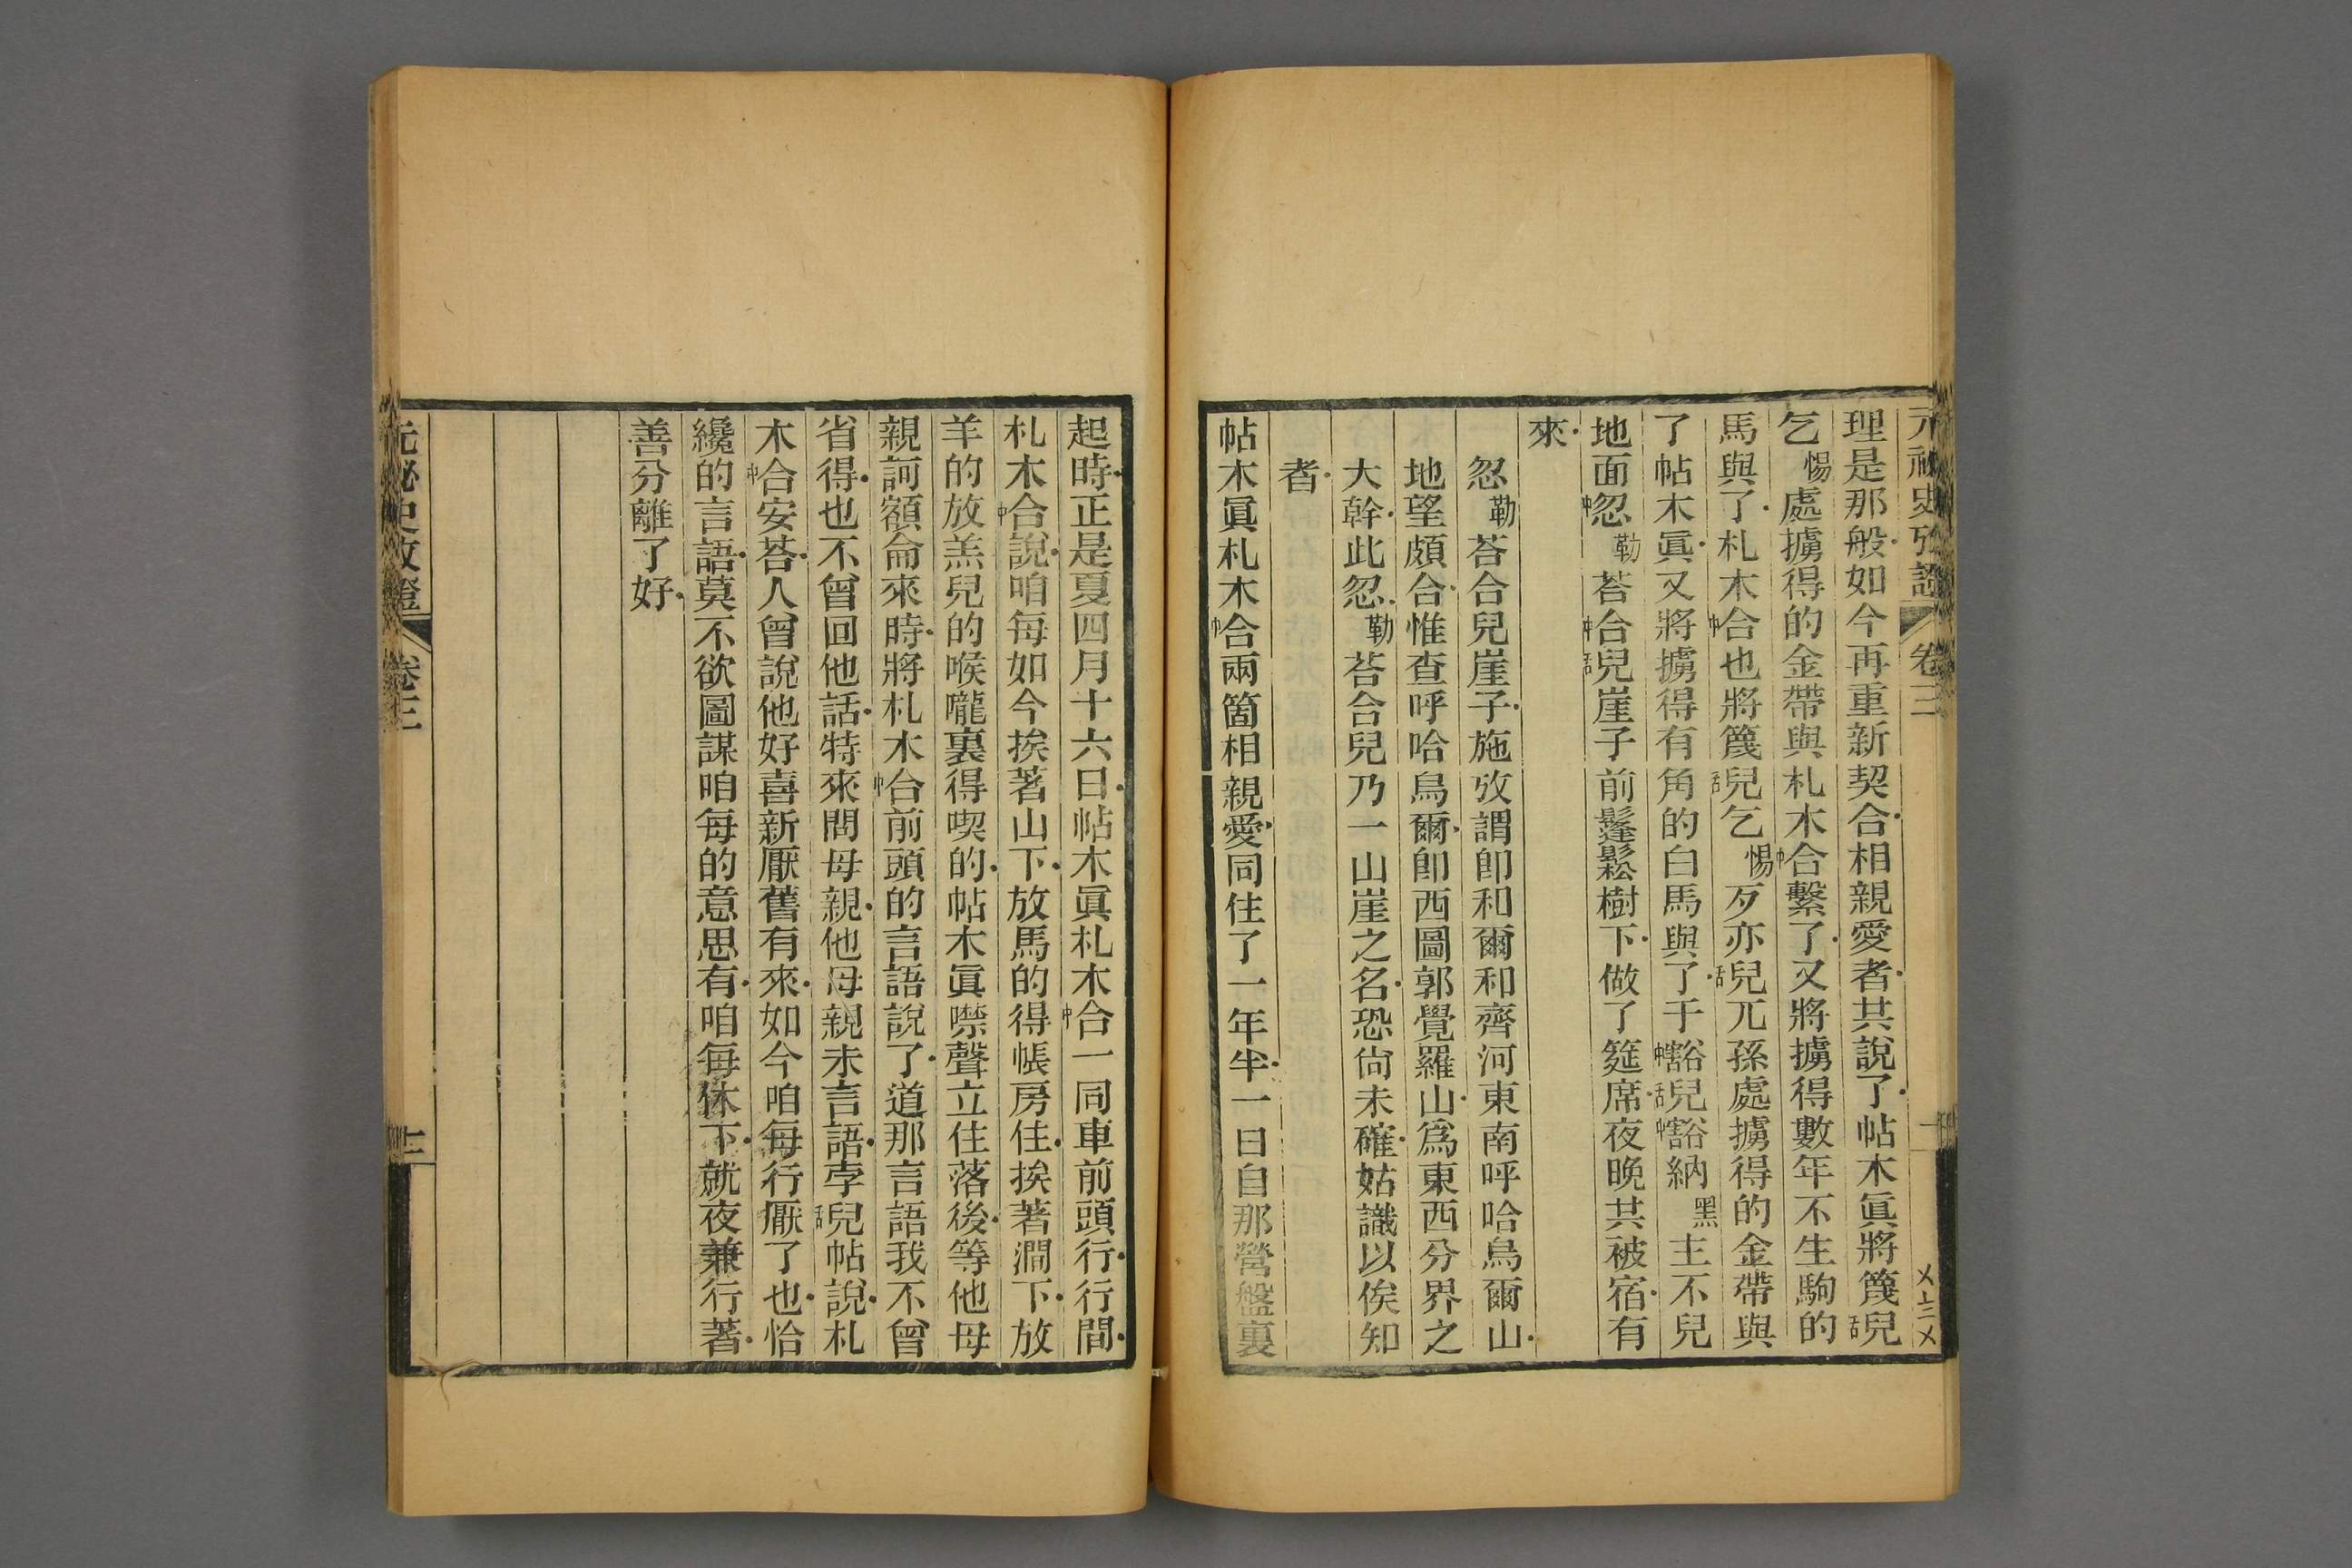 元祕史攷證 卷三
理是那般如今再重新契合相親愛者共說了帖木眞將篾舌兒
乞惕處擄得的金帶與札木中合繫了又將擄得數年不生駒的
馬與了札木中合也將篾舌兒乞惕歹亦舌兒兀孫處擄得的金帶與
了帖木眞又將擄得有角的白馬與了于中豁舌兒中豁納黑主不兒
地面中忽勒荅中合舌兒崖子前鬔鬆樹下做了筵席夜晚共被宿有
來
忽勒荅合兒崖子施攷謂卽和爾和齊河東南呼哈烏爾山
地望頗合惟查呼哈烏爾卽西圖郭覺羅山爲東西分界之
大幹此忽勒荅合兒乃一山崖之名恐尙未確姑識以俟知
者
帖木眞札木中合兩箇相親愛同住了一年半一日自那營盤裏
起時正是夏四月十六日帖木眞札木中合一同車前頭行行間
札木中合說咱每如今挨著山下放馬的得帳房住挨著澗下放
羊的放羔兒的喉嚨裏得喫的帖木眞噤聲立住落後等他母
親訶額侖來時將札木中合前頭的言語說了道那言語我不曾
省得也不曾回他話特來問母親他母親未言語孛舌兒帖說札
木中合安荅人曾說他好喜新厭舊有來如今咱每行厭了也恰
纔的言語莫不欲圖謀咱每的意思有咱每休下就夜兼行著
善分離了好
元祕史攷證 卷三